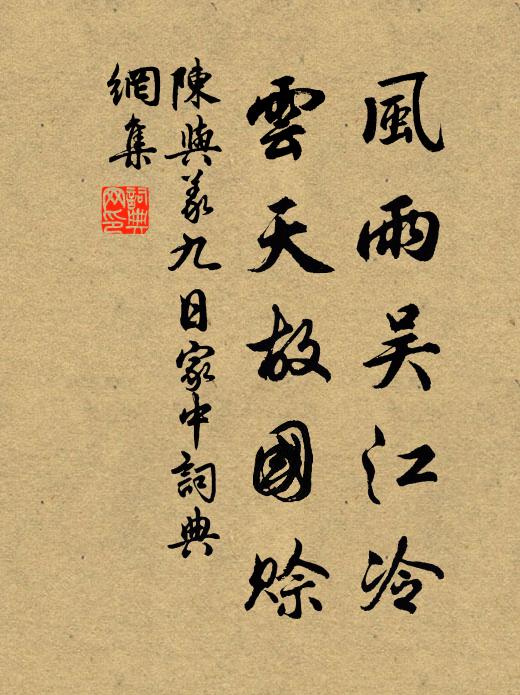 風雨吴江冷
雲天故國賒
陳與义九日家中詞典
網集
詞典
网印